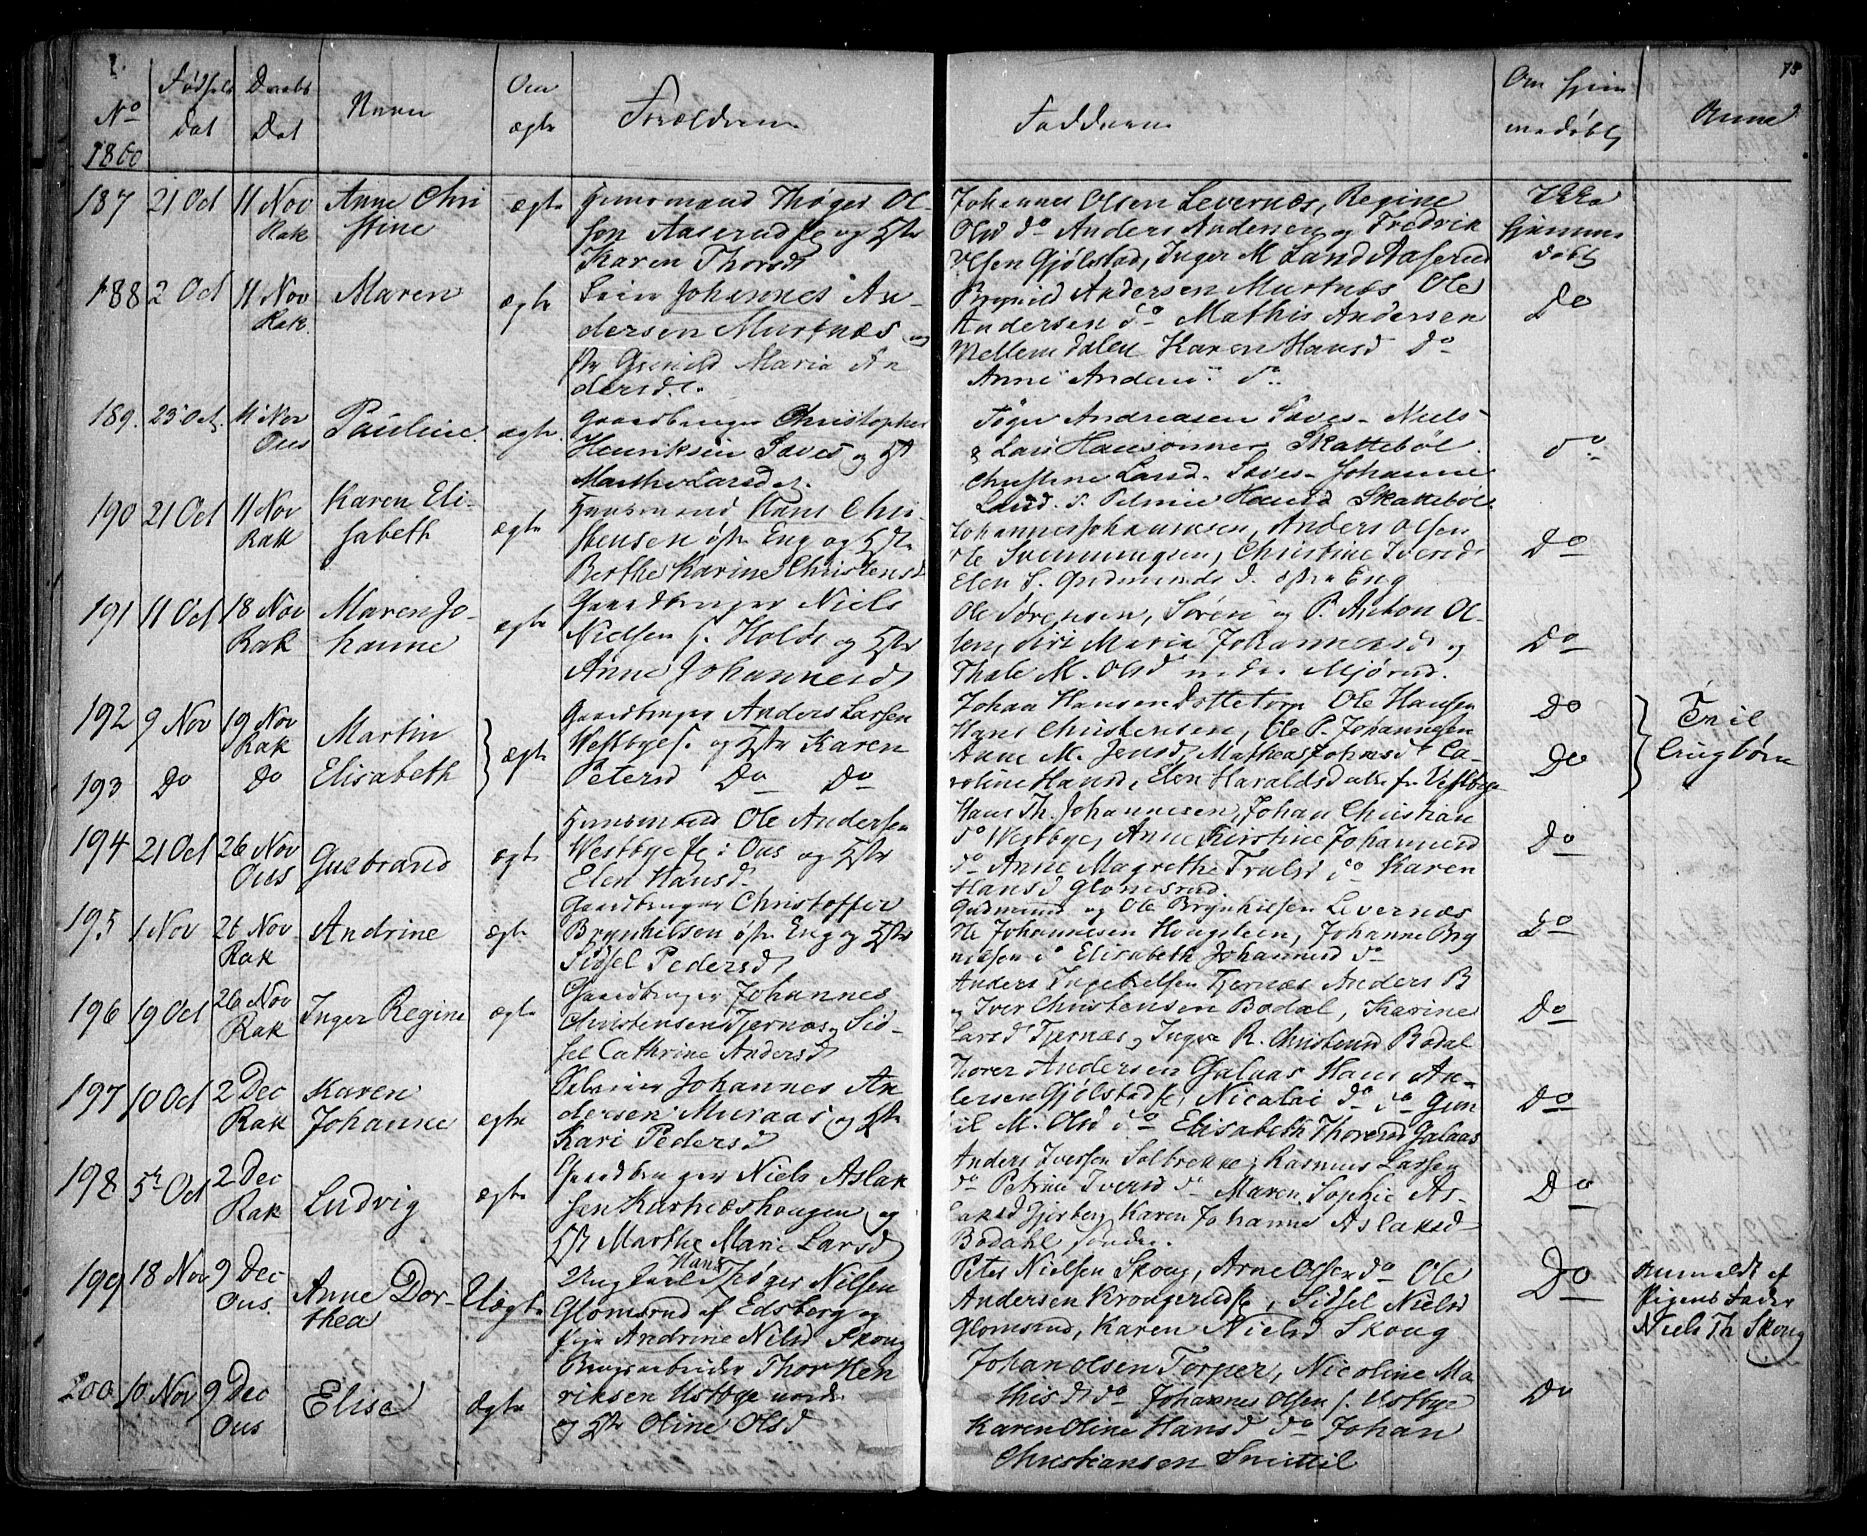 No
1860
Fødsels
dat
Daabs
Dat
Navn
Om
ægte
Forældrene
Fadderne
Om hjem
medøbt
Anm
75
187 21 Oct 11 Nov Rak
Anne Chri
stine
ægte
Huusmand Thøger Ol-
sen Aaserud og Hstr
Karen Thorsd
Johannes Olsen Levernæs, Regine
Olsd do Anders Andersen og Fredrik
Olsen Gjølstad, Inger M Land Aaserud
Ikke
hjemme
døbt
188 2 Oct 11 Nov Rak.
Maren
ægte
Johannes An-
dersen Murtnæs og
Maria An
dersd.
Brynild Andersen Murtnæs Ole
Andersen do Mathis Andersen
Mellemdalen Karen Hansd Do
Anne Anders do
Do
189. 25 Oct. 11 Nov Ous
Pauline
ægte.
Gaardbruger Christopher
Henriksen Saves og H
Marthe Larsdt.
Andreasen Saves Niels
& Lars Hansønner Skattebøl
Christine Larsd. Saves Johanne
Hansd Skattebøl
do
190 21 Oct 11 Nov Rak
Karen Eli-
sabeth
ægte
Huusmand Hans Chri
stensen østr Eng og Hstr
Berthe Karine Christensd
Johannes Johannesen, Anders Olsen
Ole Svenningsen, Christine Iversd
Elen S. Gudmunds d. østre Eng
Do
191 11 Oct 18 Nov Rak
Maren Jo-
hanne
ægte
Gaardbruger Niels
Nielsen s. Holøs og Hstr
Anne Johannesd
Ole Sørensen, Søren og P. Anton Ol-
sen, Siri Maria Johannesd og
Thale M. Olsd nedre Mjørud.
Do
192 9 Nov 19 Nov Rak
Martin
193 Do Do
Elisabeth
ægte
Gaardbruger Anders Larsen
Westbye s. og Hstr Karen
Petersd Do Do
Johan Hansen Dottetorp Ole Hansen
Hans Christensen, Ole P. Johannesen
Anne M. Jensd, Mathea Johansd Ca-
roline Hansd, Elen Haraldsd alle fr Vestbye
Do
Do
Tvil
lingbørn
194 21 Oct 26 Nov Ous
Gulbrand
ægte
Huusmand Ole Andersen
Westbye i Ous og Hstr
Elen Hansd.
Hans Th. Johannesen, Johan Christian
do Westbye, Anne Kirstine Johannesd
do Anne Magrethe Trulsd do Karen
Hansd Glomsrud.
Do
195 1 Nov 26 Nov Rak
Andrine
ægte
Gaardbruger Christoffer
Brynhilsen østr Eng og Hstr
Sidsel Pedersd
Gudmund og Ole Brynhilsen Levernæs
Ole Johannesen Hougsteen, Johanne Bry
nilsen do Elisabeth Johannesd do
Do
196 19 Oct 26 Nov Rak
Inger Regine
ægte
Gaardbruger Johannes
Christensen Tjernæs og Sid-
sel Cathrine Andersd
Anders Ingebretsen Tjernæs Anders B
og Iver Christensen Bodal, Karine
Larsd Tjernæs, Inger R. Christensd Bodal
Do
197 10 Oct 2 Dec Rak
Karen
Johanne
ægte
Johannes An-
dersen Muraas og Hstr
Kari Pedersd
Thorer Andersen Galaas Hans An-
dersen Gjølstad, Nicolai do do Gun
il M. Olsd do Elisabeth Thorersd Galaas
Do
198 5te Oct 2 Dec Rak
Ludvig
ægte
Gaardbruger Niels Aslak
sen Kurnæshougen og
Hstr Marthe Marie Larsd
Anders Iversen Solbrekke, Rasmus Larsen
do Petrine Iversd do Maren Sophie As-
laksd Karen Johanne Aslaksd
Bodahl søndre.
Do
199 18 Nov 9 Dec Ous.
Anne Dor-
thea
Uægte
Ungkarl Hans Thøger Nielsen
Glomsrud af Edsberg og
Pige Andrine Nilsd Skoug
Peter Nielsen Skoug, Arne Olsen do Ole
Andersen Krogerud, Sidsel Nielsd
Glomsrud, Karen Nielsd Skoug
Do
Anmeldt af
Pigens Fader
Niels Th. Skoug
200 10 Nov 9 Dec Ous
Elise
Ægte
Brugsarbeider Thor Hen
riksen Ustbye nordr
og Hstr Oline Olsd
Johan Olsen Torper, Nicoline Ma
thisd do Johannes Olsen s. Ustbye
Karen Oline Hansd do Johan
Christiansen Smittil
Do